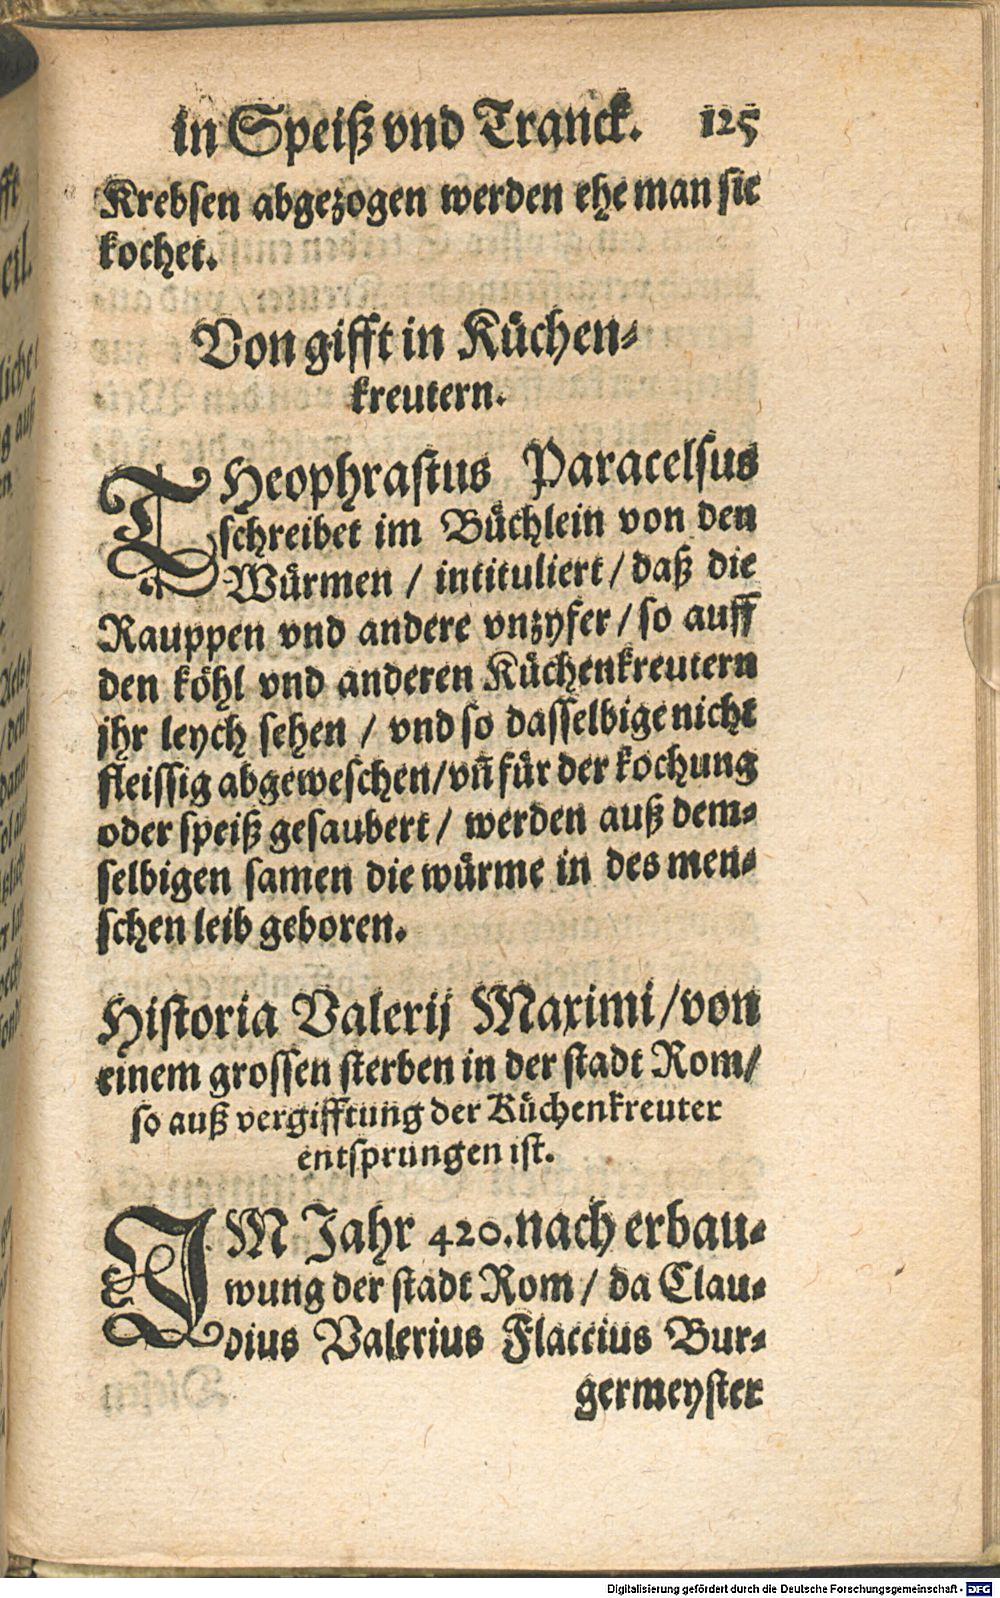 in Speiß vnd Tranck. 125
Krebsen abgezogen werden ehe man sie
kochet.
Von gifft in Küchen-
kreutern.
THeophrastus Paracelsus
schreibet im Büchlein von den
Würmen / intituliert / daß die
Rauppen vnd andere vnzyfer / so auff
den köhl vnd anderen Küchenkreutern
jhr leych sehen / vnd so dasselbige nicht
fleissig abgeweschen/vñ für der kochung
oder speiß gesaubert / werden auß dem-
selbigen samen die würme in des men-
schen leib geboren.
Historia Valerij Maximi/von
einem grossen sterben in der stadt Rom/
so auß vergifftung der Küchenkreuter
entsprungen ist.
IM Jahr 420. nach erbau-
wung der stadt Rom / da Clau-
dius Valerius Flaccius Bur-
germeyster
Digitalisierung gefördert durch die Deutsche Forschungsgemeinschaft - DFG